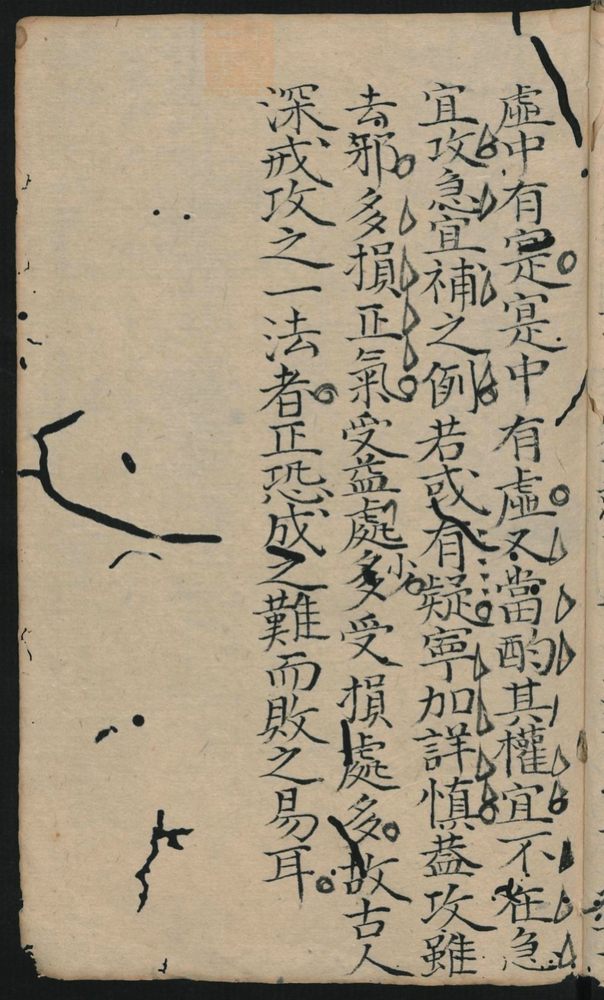 虛中有寔寔中有虛又當酌其權宜不在急
宜攻急宜補之例若或有疑寧加詳慎葢攻雖
去邪多損正氣受益處少受損處多故古人
深戒攻之一法者正恐成之難而敗之易耳